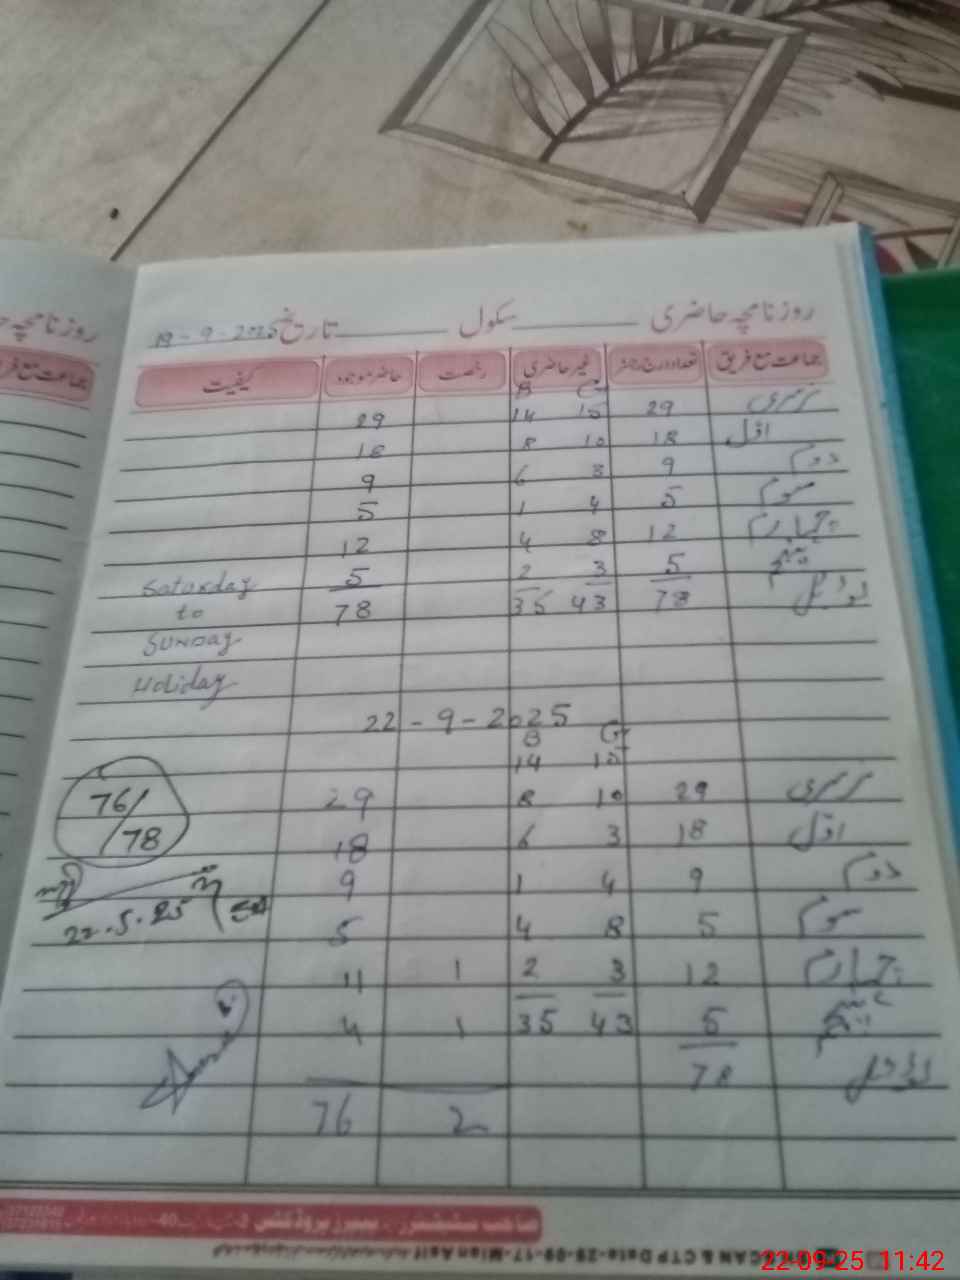 روزنامچہ حاضری ــــــ سکول ــــــ تاریخ 19-9-2025
جماعت مع فریق تعداد درج رجسٹر غیر حاضری رخصت حاضر موجود کیفیت
B G
نرسری 29 15 14 29
اول 18 10 8 18
دوم 9 3 6 9
سوم 5 4 1 5
چہارم 12 8 4 12
پنجم 5 3 2 5 Saturday
ٹوٹل 78 43 35 78 to
SUNDAY
Holiday
22-9-2025
B G
14 15
نرسری 29 10 8 29
76/78
اول 18 3 6 18
دوم 9 4 1 9
سوم 5 8 4 5
چہارم 12 3 2 1 11
پنجم 5 43 35 1 4
ٹوٹل 78
2 76
روزنامچہ
جماعت مع
22-09-25 11:42